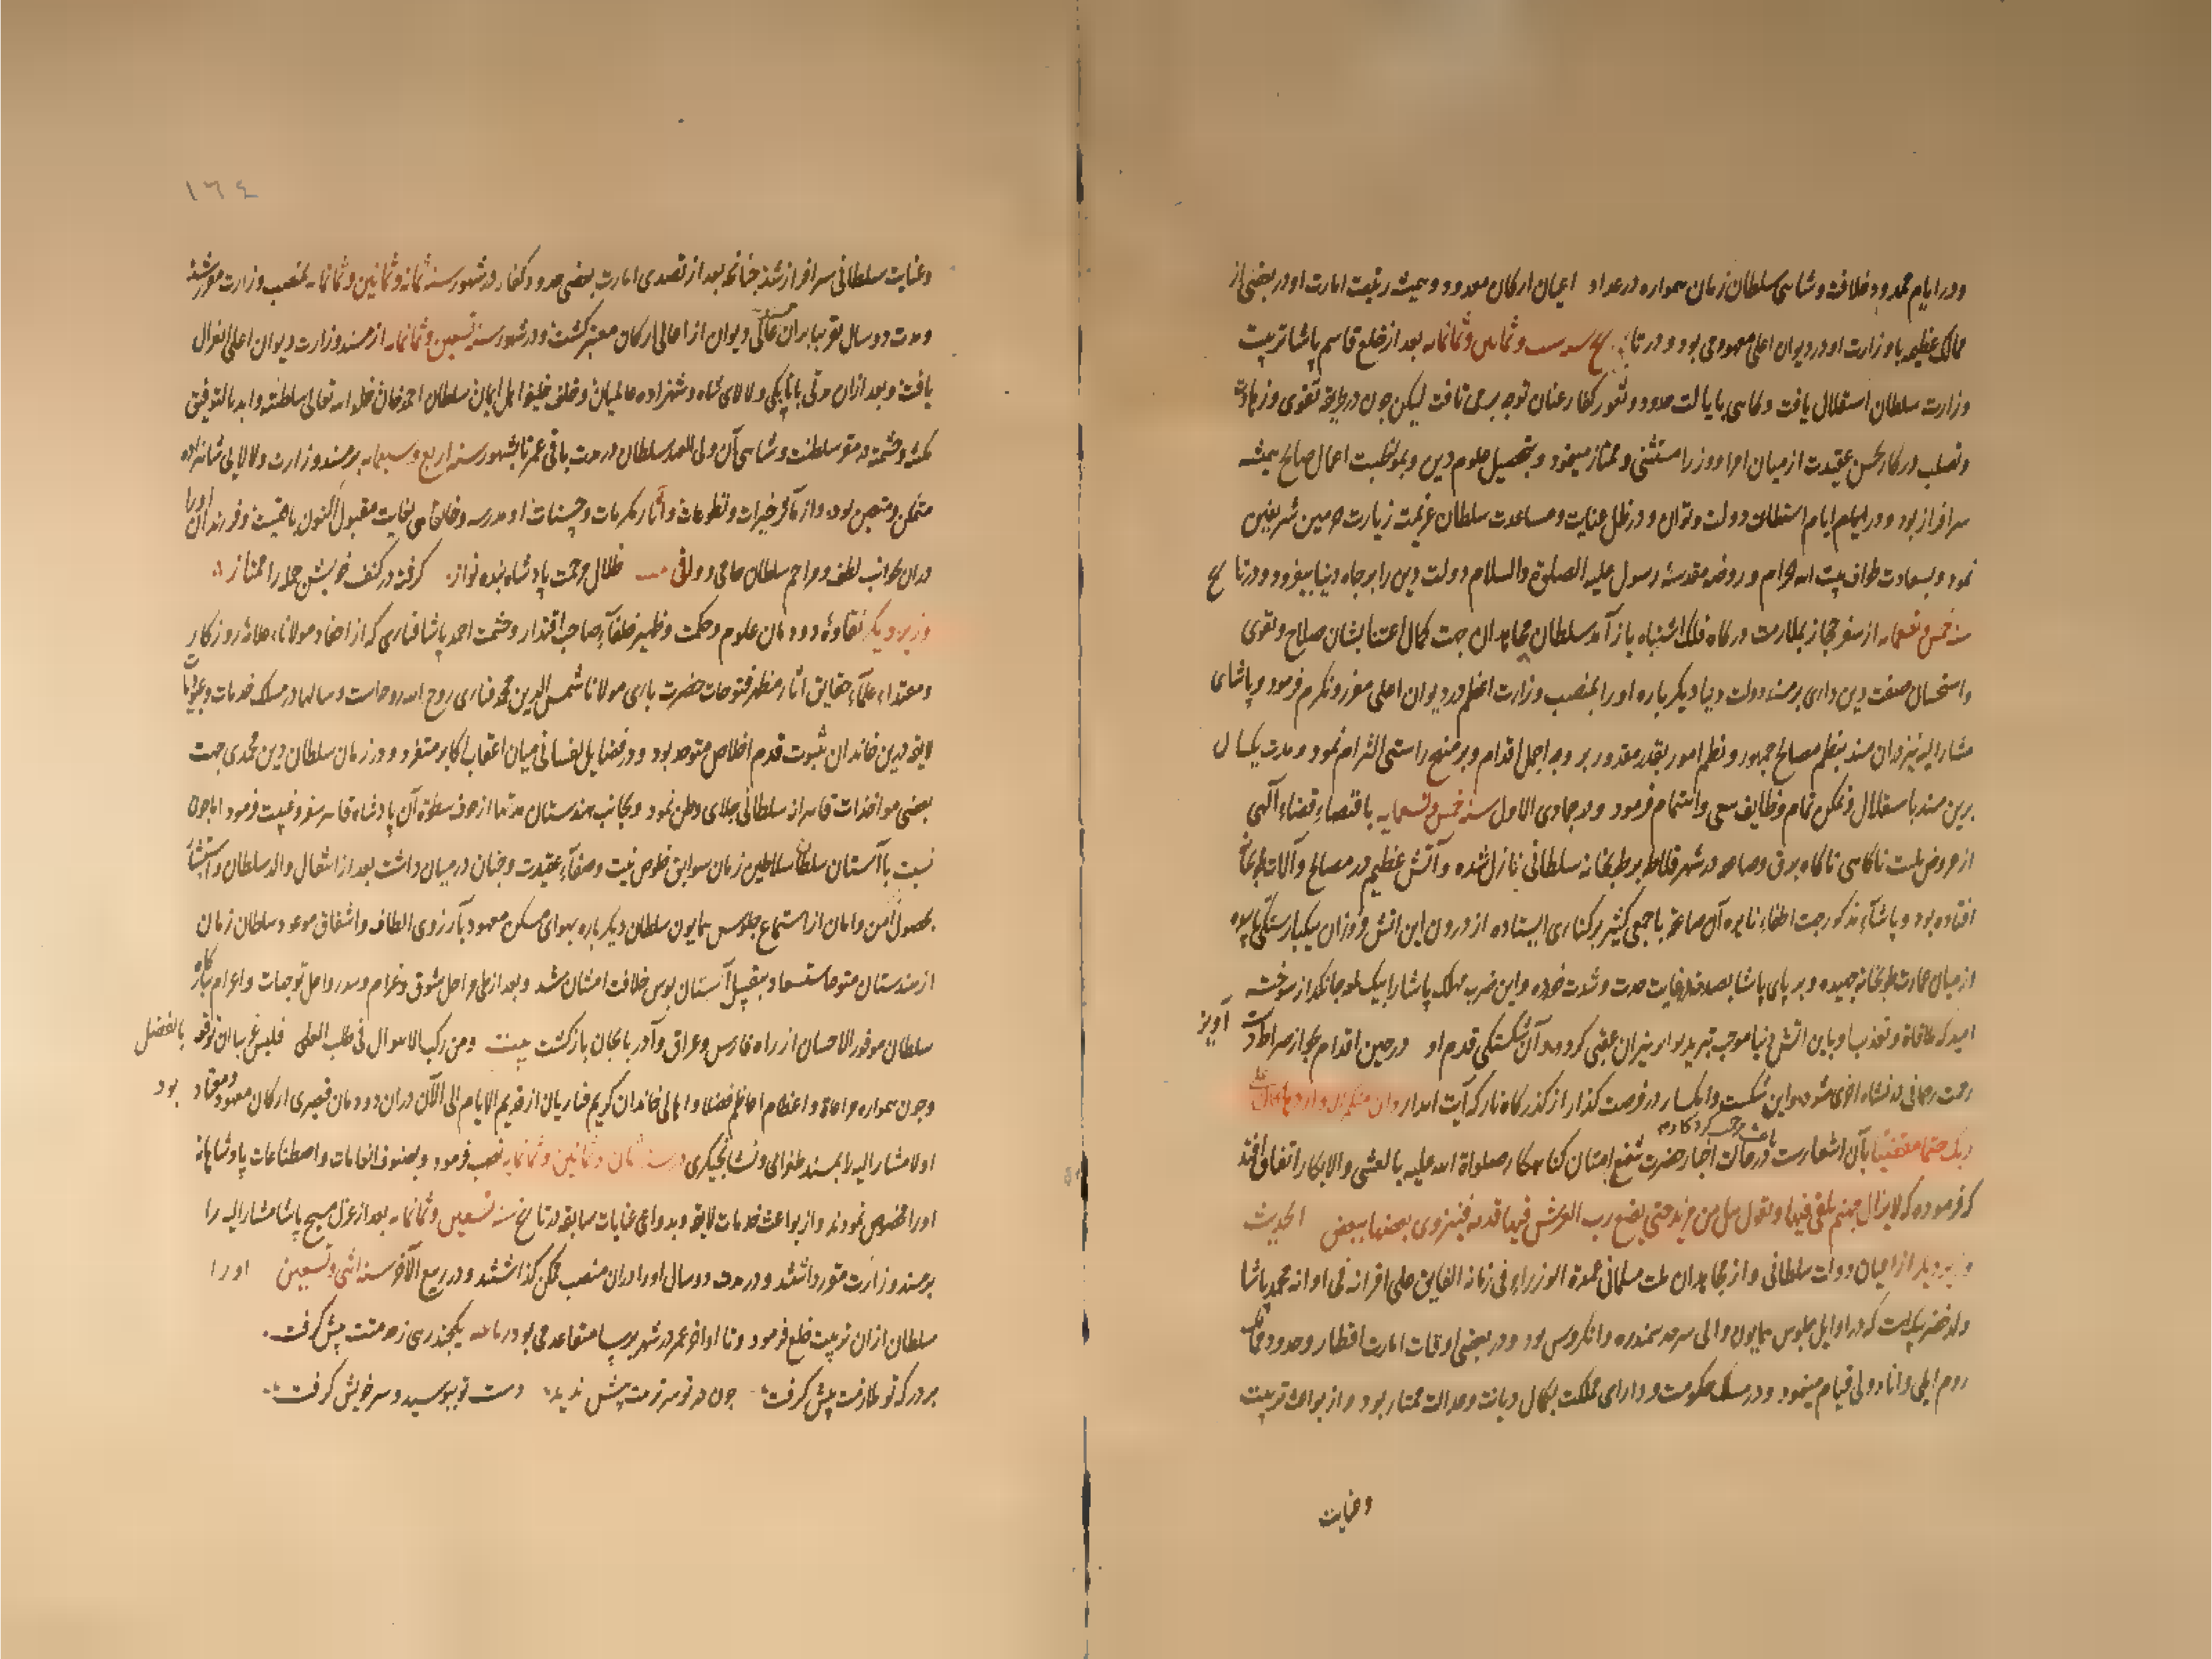 و در ایام محمدود خلافت و شاهی سلطان زمان همواره در عداد اعیان ارکان معدود و همیشه رتبت امارت او در بعضی از
ممالک عظیمه با وزارت او در دیوان اعلی معهود می بود و در تاریخ سنه ست و ثمانین و ثمانمایه بعد از خلع قاسم پاشا تربیت
وزارت سلطان استقلال یافت و گاهی بایالت حدود و ثغور کفار عنان توجه بر می تافت لیکن چون در طریقه تقوی و زهادت
و تصلب در کار بحسن عقیدت از میان امرا و وزرا مستثنی و ممتاز مینمود و بتحصیل علوم دین و بمواظبت اعمال صالح همیشه
سرافراز بود و در ایام استطاعت دولت و توان و در ظل عنایت و مساعدت سلطان عزیمت زیارت حرمین شریفین
نمود و بسعادت طواف بیت الله حرام و روضه مقدسه رسول علیه الصلوة والسلام دولت دین را بر جاه دنیا بیفزود و در تاریخ
سنه خمس و تسعمایه از سفر حجاز بملازمت درگاه فلک اشتباه باز آمد سلطان مجاهدان جهت کمال اعتنا بشان صلاح و تقوی
و استحسان صفت دین داری بر مسند دولت دنیا دیگر باره او را بمنصب وزارت اعظم در دیوان اعلی معزز و مکرم فرمود و پاشای
مشارالیه نیز در آن مسند بنظم مصالح جمهور و نظم امور بقدر مقدور بر وجه اجمل اقدام و بر منهج راستی التزام نمود و مدت یکسال
برین مسند باستقلال و تمکن تمام وظایف سعی و اهتمام فرمود و در جمادی الاول سنه خمس و تسعمایه باقتضاء قضاء الهی
از عروض بلیت ناگاهی ناگاه برق و صاعقه در شهر قلاطه بر طوبخانه سلطانی نازل شده و آتش عظیم در مصالح و آلات طوبخانه
افتاده بود و پاشاء مذکور جهت اطفاء نایره آن صاعقه با جمعی کثیر بر کناری ایستاده از درون این آتش فروزان بیکبار سنگی
از میان عمارت طوبخانه جهیده و بر پای پاشا بصدمه در غایت حدت و شدت خورده و این ضربه مهلک پاشا را بیک لمحه جانگداز سوخته
امید که و تعذیب او باین آتش دنیا موجب تبرید او از نیران عقبی گردد و آن شکستگی قدم او در حین اقدام بجواز صراط آویز
رحمت رحمانی در نشاه اخری شود و این شکست و انکسار در فرصت گذار از گذرگاه نار که آیت وان منکم الا واردها کان علی
ربک حتما مقضیا بآن اشعارست در حالت اخبار حضرت شفیع امتان گناهکار صلواة الله علیه بالعشی والابکار اتفاق افتد
که فرموده که لا یزال جهنم یلقی فیها و تقول هل من مزید حتی یضع رب العرش فیها قدمه فینزوی بعضها ببعض الحدیث
وزیر دیگر از اعیان دولت سلطانی و از مجاهدان ملت مسلمانی عمدة الوزراء فی زمانه الفایق علی اقرانه فی اوانه محمد پاشا
ولد خضر بیک است که در اوایل جلوس همایون والی سرحد سمندره و انکروس بود و در بعضی اوقات امارت اقطار و حدود ممالک
روم ایلی و انادولی قیام مینمود و در مسلک حکومت و دارای مملکت بکمال دیانت و عدالت ممتاز بود و از بواعث تربیت
وعنایت
١٦٤
وعنایت سلطانی سرافراز شد چنانچه بعد از تصدی امارت بعضی حدود کفار در شهور سنه ثمان و ثمانین و ثمانمایه بمنصب وزارت معزز شد
و مدت دو سال تقریبا بر آن دیوان از اعالی ارکان معتبر گشت و در شهور سنه تسعین و ثمانمایه از مسند وزارت دیوان اعلی انعزال
یافت و بعد از آن مدتی باتابیکی و لالای شاه و شهزاده عالمیان و خلف خلیفه اهل ایمان سلطان احمد خان خلد الله تعالی سلطنته وایده بالتوفیق
مکنته وحشمته در مقر سلطنت و شاهی آن ولی العهد سلطان در مدت باقی عمر تا بشهور سنه اربع و تسعمایه بر مسند وزارت و لالایی شاهزاده
متمکن و متعین بود و از مآثر خیرات و تطوعات و آثار مکرمات و حسنات او مدرسه و خانقاهی بغایت مقبول اکنون باقیست و فرزندان او را
در آن جوانب لطف و مراحم سلطان حامی و واقی ظلال مرحمت پادشاه بنده نواز گرفته در کنف خویشن جمله را ممتاز
وزیر دیگر نقاوهٔ دودمان علوم و حکمت و ظهیر خلفآء صاحب اقتدار و حشمت احمد پاشا فناری که از احفاد مولانا علامهٔ روزگار
و مقتداء علمآء حقایق آثار مظهر فتوحات حضرت باری مولانا شمس الدین محمد فناری روح الله روحه است و سالها در مسلک خدمات و عبودیات
لایقه بدین خاندان بثبوت قدم اخلاص متوحد بود و در فضایل نفسانی میان اعقاب اکابر متفرد و در زمان سلطان دین محمدی جهت
بعضی مواخذات قاهرانه سلطانی جلای وطن نمود و بجانب هندستان مدتها از خوف سطوة آن پادشاه قاهر سفر و غیبت فرمود اما چون
نسبت بآستان سلطان سلاطین زمان سوابق خلوص نیت و صفآء عقیدت و جنان در میان داشت بعد از انتقال والد سلطان و استبشار
بحصول امن و امان از استماع جلوس همایون سلطان دیگر باره بهوای مسکن معهود بآرزوی الطاف و اشفاق موعود سلطان زمان
از هندستان متوجها مستسعدا بتقبیل آستان بوس خلافت امتنان شد و بعد از طی مراحل شوق و غرام و رواحل توجهات و اعزام ببارگاه
سلطان موفور الاحسان از راه فارس و عراق و آذربایجان بازگشت بیت ومن رکب الاهوال فی طلب العلی فلیس غریبا ان ترفع بالفضل
و چون همواره مراعاة و اعظام اعاظم فضلا و اهالی خاندان کریم فناریان از قدیم الایام الی الآن در آن دودمان قیصری ارکان معهود و معتاد بود
اولا مشارالیه را بمسند طغرائی و نشانجیگری در سنه ثمان و ثمانین و ثمانمایه نصب فرمود و بصنوف انعامات و اصطناعات پادشاهانه
او را مخصوص نمودند و از بواعث خدمات لایقه و بدواعی عنایات سابقه در تاریخ سنه تسعین و ثمانمایه بعد از عزل مسیح پاشا مشارالیه را
بر مسند وزارت مقرر داشتند و در مدت دو سال او را در آن منصب ممکن گذاشتند و در ربیع الآخر سنه اثنی و تسعین او را
سلطان از آن تربیت خلع فرمود و تا اواخر عمر در شهر بروسا متقاعد می بود یکچندر‌ی زحمتت پیش گرفت
بر درکه تو ملازمت پیش گرفت چون در تو سر تربیت پیش ندید دست تو ببوسید و سر خویش گرفت